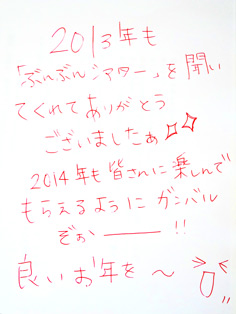 2013年も
「ぶんぶんシアター」を開い
てくれてありがとう
ございましたぁ✧✧
2014年も皆さんに楽しんで
もらえるようにガンバル
ぞぉ―――!!
良いお年を～